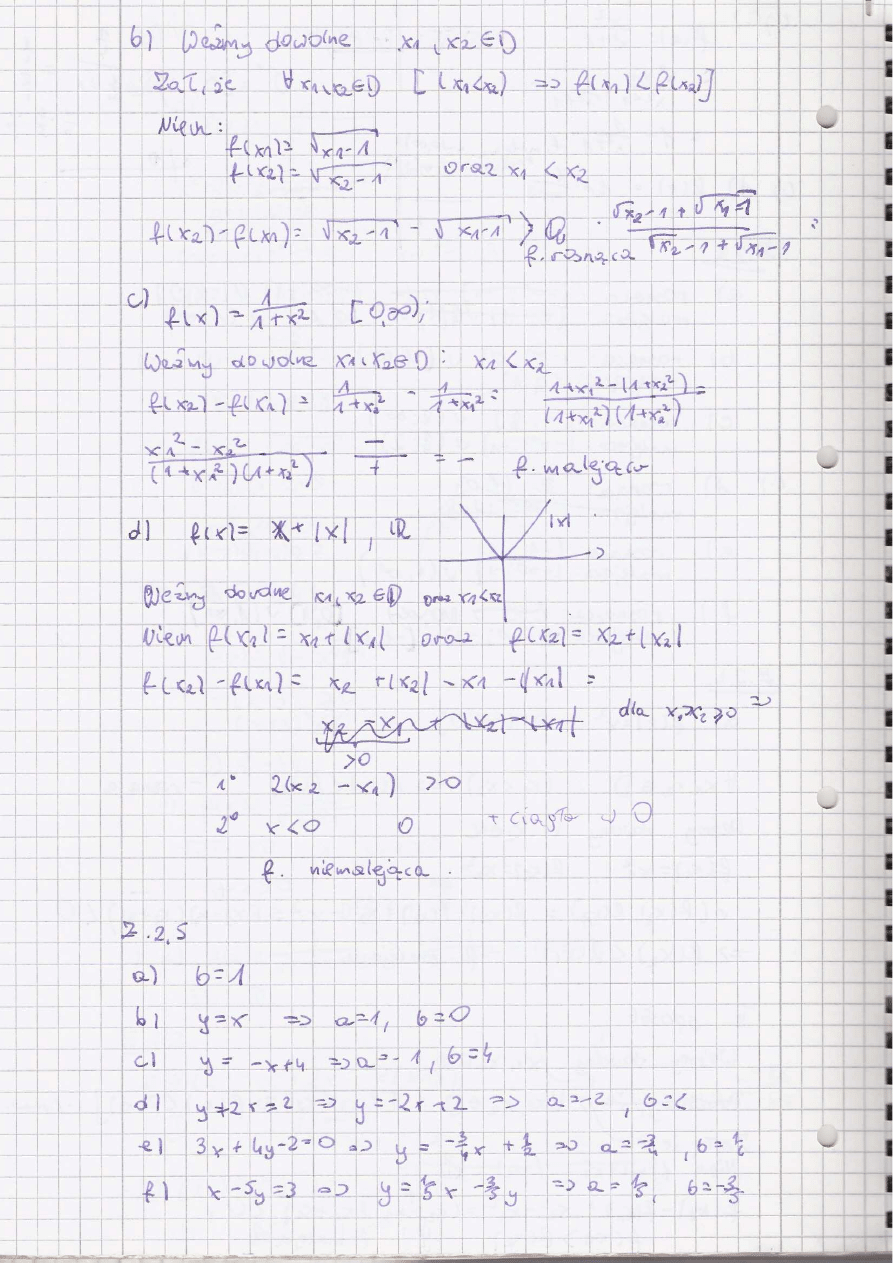 b) Weźmy dowolne x1, x2 ∈ D
Zał, że ∀ x1,x2∈D [(x1<x2) => f(x1) < f(x2)]
Niech:
f(x1) = √(x1-1)
f(x2) = √(x2-1) oraz x1 < x2
f(x2)-f(x1) = √(x2-1) - √(x1-1) > 0 · (√x2-1 + √x1-1)/(√x2-1 + √x1-1) =
f. rosnąca
c) f(x) = 1/(1+x²) [0,∞);
Weźmy dowolne x1,x2∈D : x1 < x2
f(x2)-f(x1) = 1/(1+x2²) - 1/(1+x1²) = (1+x1²-(1+x2²))/((1+x1²)(1+x2²)) =
(x1²-x2²)/((1+x1²)(1+x2²)) -/+ = - f. malejąca
d) f(x) = x + |x| , ℝ
|x|
Weźmy dowolne x1,x2 ∈ D oraz x1<x2
Niech f(x1) = x1+|x1| oraz f(x2) = x2+|x2|
f(x2)-f(x1) = x2 +|x2| -x1 -|x1| =
x2 -x1 + |x2|-|x1| dla x1,x2 ≥0 =>
>0
1° 2(x2 - x1) >0
2° x<0 0 + ciągła w 0
f. niemalejąca.
Z.2.5
a) b=1
b) y=x => a=1, b=0
c) y= -x+4 => a=-1, b=4
d) y+2x=2 => y=-2x+2 => a=-2, b=2
e) 3x+4y-2=0 => y = -3/4x + 1/2 => a=-3/4, b=1/2
f) x-5y=3 => y = 1/5 x -3/5 y => a= 1/5, b=-3/5